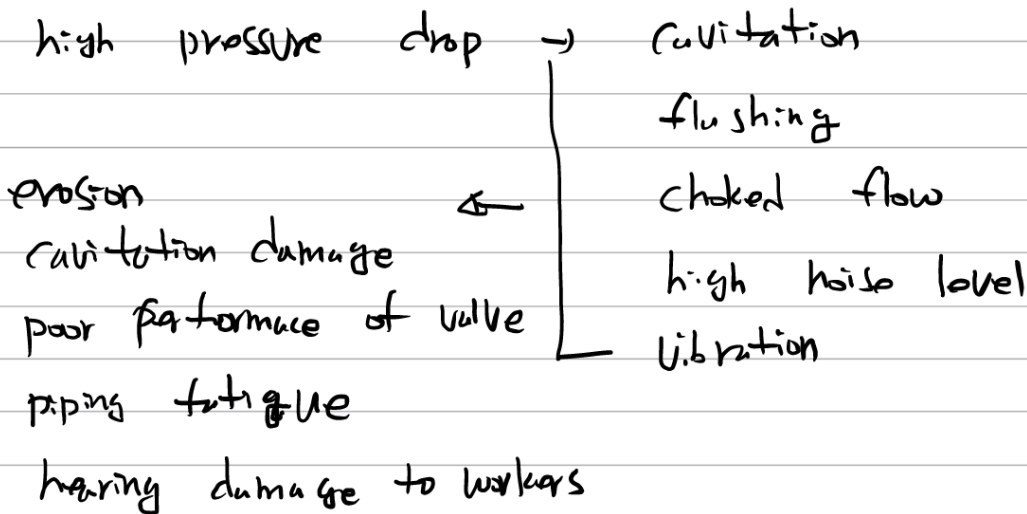 high pressure drop → cavitation
flushing
choked flow
high noise level
vibration
erosion
cavitation damage
poor performace of valve
piping fatigue
hearing damage to workers